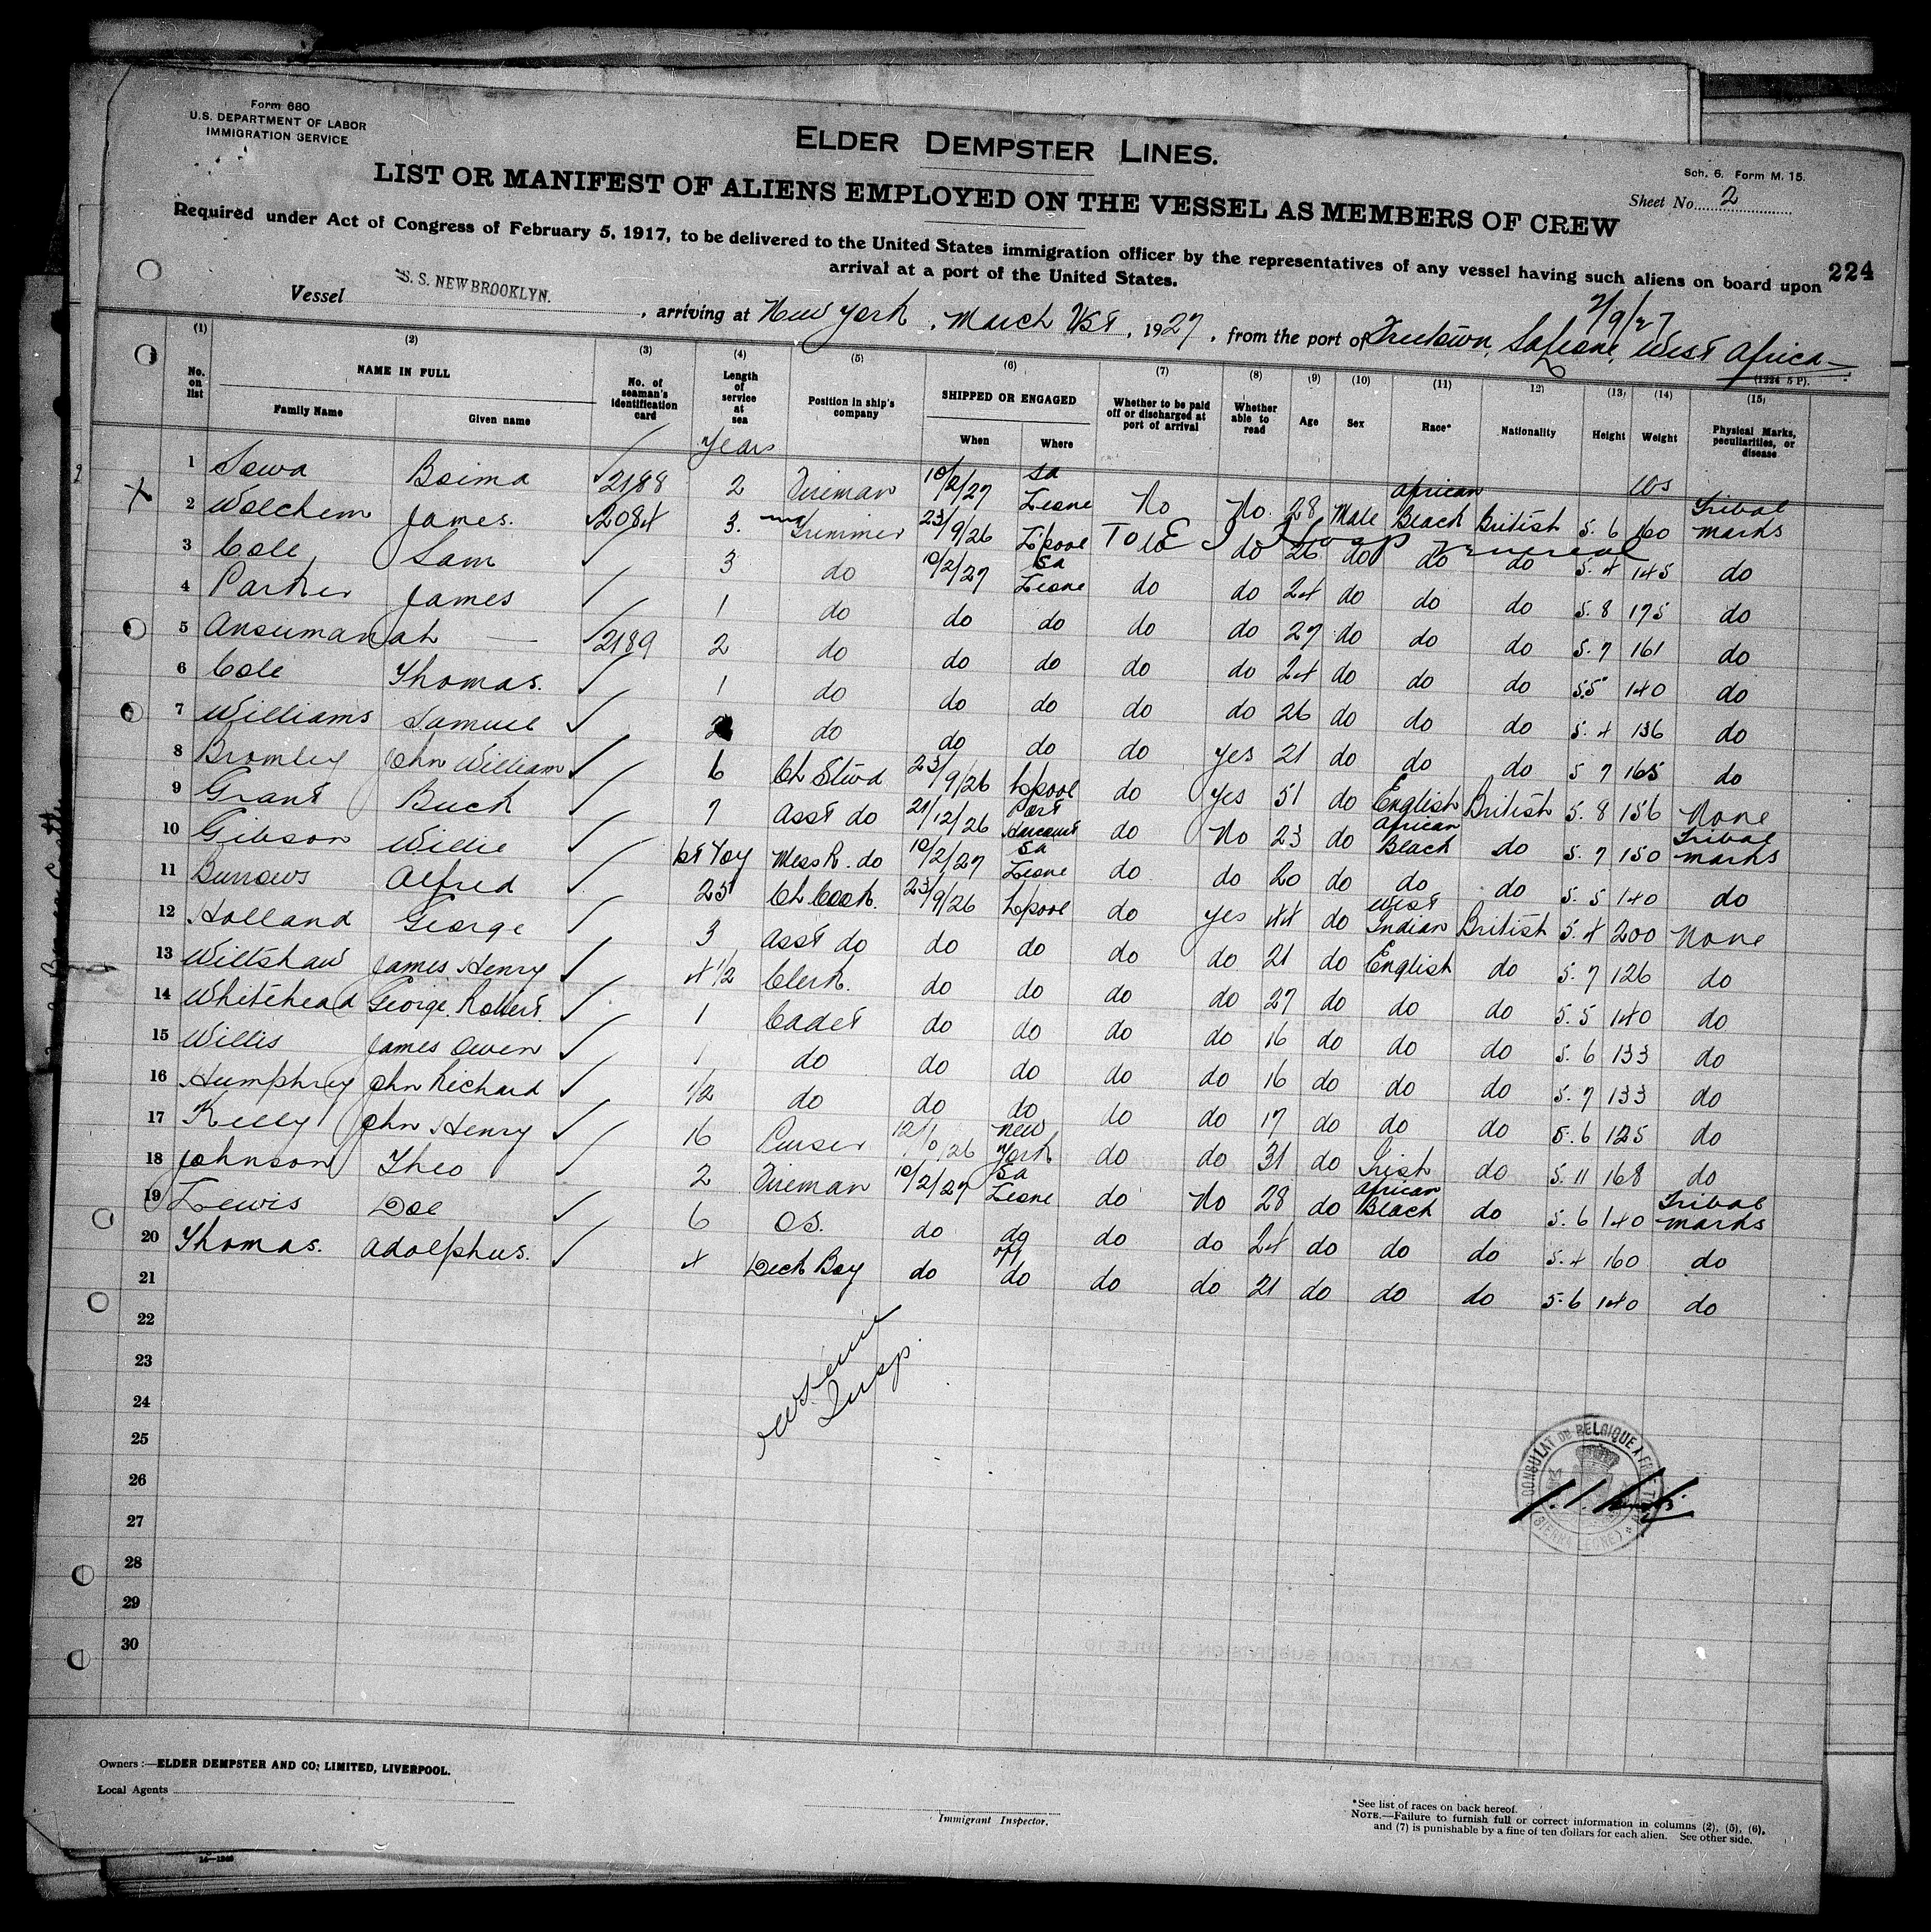 Form 680
U.S. DEPARTMENT OF LABOR
IMMIGRATION SERVICE
ELDER DEMPSTER LINES.
Sch. 6. Form M. 15.
LIST OR MANIFEST OF ALIENS EMPLOYED ON THE VESSEL AS MEMBERS OF CREW
Sheet No. 2
Required under Act of Congress of February 5, 1917, to be delivered to the United States immigration officer by the representatives of any vessel having such aliens on board upon
arrival at a port of the United States.
224
Vessel S. S. NEW BROOKLYN. , arriving at New York, March 1st, 1927, from the port of Freetown, Sa Leone, West Africa
(1224 5 P).
(1) (2) (3) (4) (5) (6) (7) (8) (9) (10) (11) 12) (13) (14) (15)
No. on list NAME IN FULL Family Name Given name No. of seaman's identification card Length of service at sea Position in ship's company SHIPPED OR ENGAGED When Where Whether to be paid off or discharged at port of arrival Whether able to read Age Sex Race* Nationality Height Weight Physical Marks, peculiarities, or disease
Years lbs
1 Sowa Boima 2188 2 Fireman 10/2/27 Sa Leone No No. 28 Male African Black British 5. 6 160 Tribal marks
2 Wolchem James. 2084 3. Trimmer 23/9/26 L'pool do do 26 do do do 5. 4 145 do
3 Cole Sam 3 do 10/2/27 Sa Leone do do 24 do do do 5. 8 175 do
4 Parker James 1 do do do do do 27 do do do 5. 7 161 do
5 Ansumanah — 2189 2 do do do do do 24 do do do 5.5 140 do
6 Cole Thomas. 1 do do do do do 26 do do do 5. 4 136 do
7 Williams Samuel 2 do do do do yes 21 do do do 5 7 165 do
8 Bromley John William 6 Ch Stwd 23/9/26 L'pool do yes 51 do English British 5. 8 156 None
9 Grant Buck 7 Asst do 21/12/26 Port Harcourt do No 23 do African Black do 5. 7 150 Tribal marks
10 Gibson Willie 1st Voy Mess R. do 10/2/27 Sa Leone do do 20 do do do 5. 5 140 do
11 Burrows Alfred 25 Ch Cook. 23/9/26 L'pool do yes 44 do West Indian British 5. 4 200 None
12 Holland George 3 Asst do do do do do 21 do English do 5. 7 126 do
13 Wiltshaw James Henry 4 1/2 Clerk. do do do do 27 do do do 5. 5 140 do
14 Whitehead George Robert. 1 Cadet do do do do 16 do do do 5. 6 133 do
15 Willis James Owen 1 do do do do do 16 do do do 5. 7 133 do
16 Humphrey John Richard 1/2 do do do do do 17 do do do 5. 6 125 do
17 Kelly John Henry 16 Purser New York do do 31 do Irish do 5. 11 168 do
18 Johnson Theo 2 Fireman 10/2/27 Sa Leone do No 28 do African Black do 5. 6 140 Tribal marks
19 Lewis Doe 6 OS. do do do do 24 do do do 5. 4 160 do
20 Thomas. Adolphus. 4 Deck Boy do do do do 21 do do do 5. 6 140 do
21
22
23
24
25
26
27
28
29
30
Insp
CONSULAT DE BELGIQUE A FREETOWN
(SIERRA LEONE)
Owners:—ELDER DEMPSTER AND CO; LIMITED, LIVERPOOL.
Local Agents
Immigrant Inspector.
*See list of races on back hereof.
NOTE.—Failure to furnish full or correct information in columns (2), (5), (6),
and (7) is punishable by a fine of ten dollars for each alien. See other side.